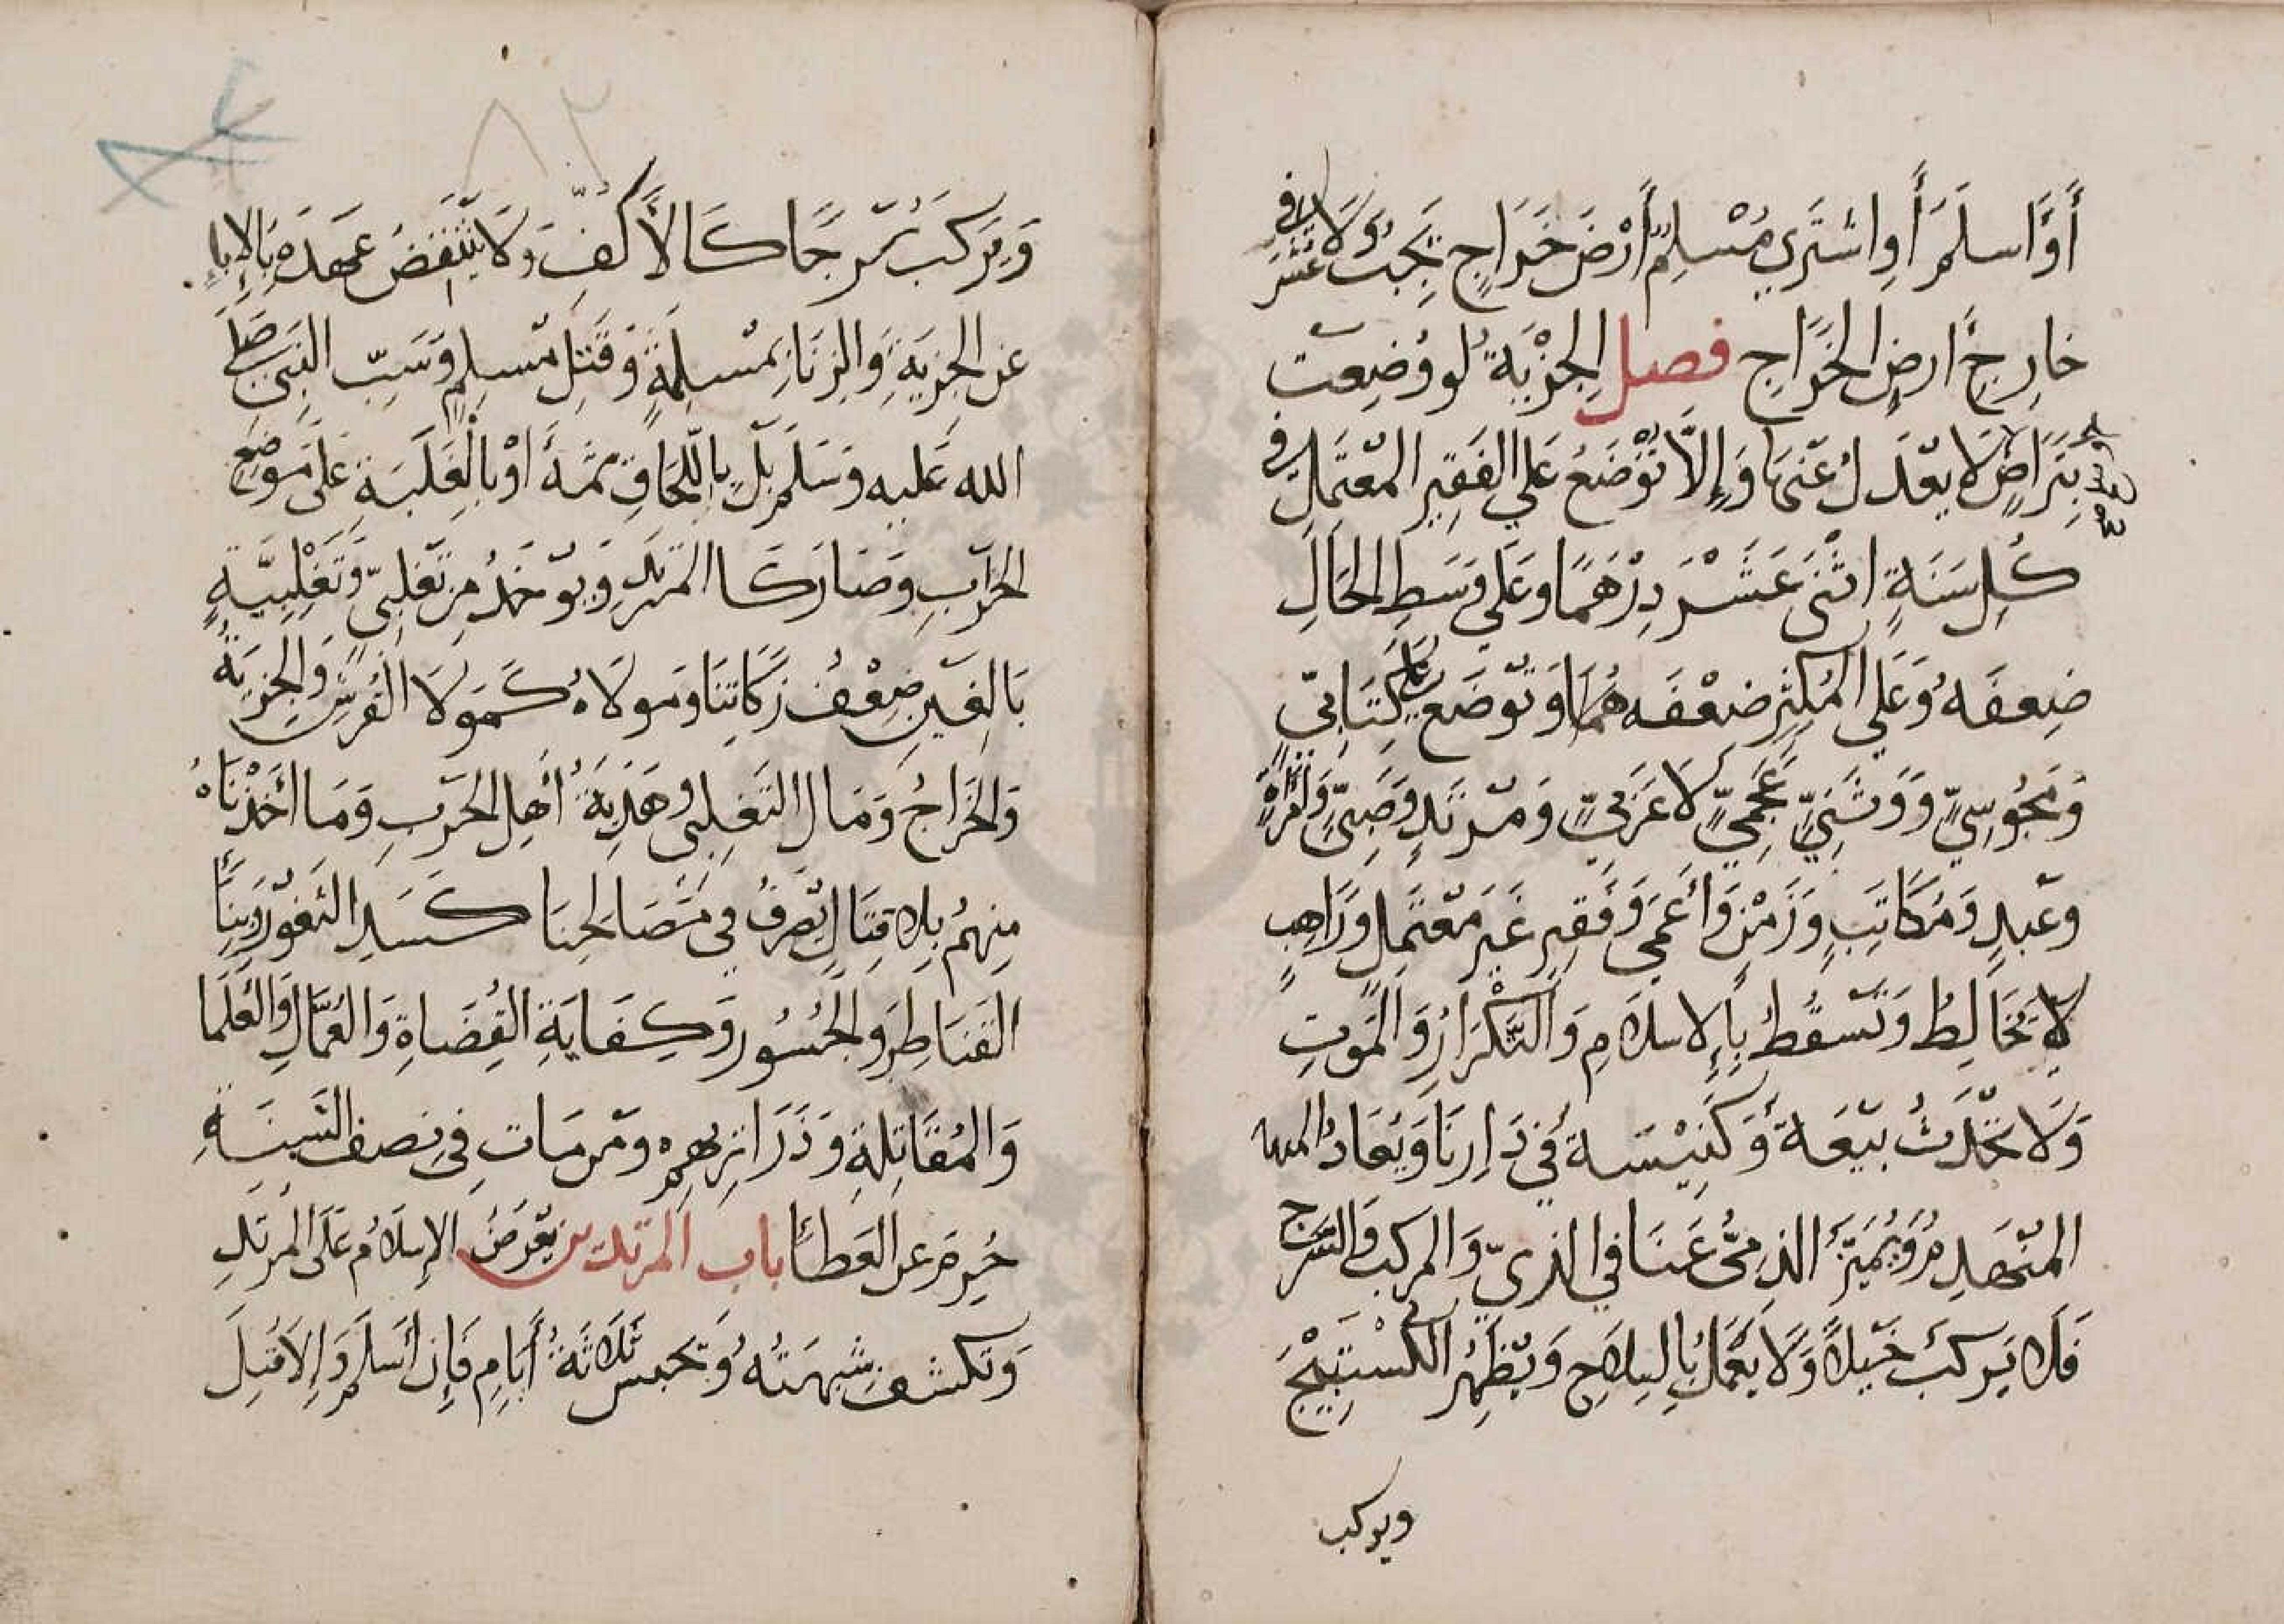 أو أسلم أو اشترى مسلم أرض خراج تجب ولا عشر في
خارج أرض الخراج فصل الجزية لو وضعت
بتراض لا يعدل عنها وإلا توضع على الفقير المعتمل في
كل سنة اثنى عشر درهما وعلى وسط الحال
ضعفه وعلى المكثر ضعفه هما وتوضع على كتابي
ومجوسي ووثني عجمي لا عربي ومرتد وصبي وامرأة
وعبد ومكاتب وزمن وأعمى وفقير غير معتمل وراهب
لا يخالط وتسقط بالإسلام والتكرار والموت
ولا تحدث بيعة وكنيسة في دارنا ويعاد
المنهدم ويميز الذمي عنا في الزي والمركب والسرج
فلا يركب خيلا ولا يعمل بالسلاح ويظهر الكستيج
ويركب
ويركب سرجا كالأكف ولا ينتقض عهده بالإباء
عن الجزية والزنا بمسلمة وقتل مسلم وسب النبي صلى
الله عليه وسلم بل باللحاق ثمة أو بالغلبة على موضع
الحرب وصار كالمرتد ويؤخذ من تغلبي وتغلبية
بالغين ضعف زكاتنا ومولاه كمولا القرشي والجزية
والخراج ومال التغلبي وهدية أهل الحرب وما أخذناه
منهم بلا قتال يصرف في مصالحنا كسد الثغور وبناء
القناطر والجسور وكفاية القضاة والعمال والعلما
والمقاتلة وذراريهم ومن مات في نصف السنة
حرم عن العطا باب المرتدين يعرض الإسلام على المرتد
وتكشف شبهته وتحبس ثلاثة أيام فإن أسلم وإلا قتل